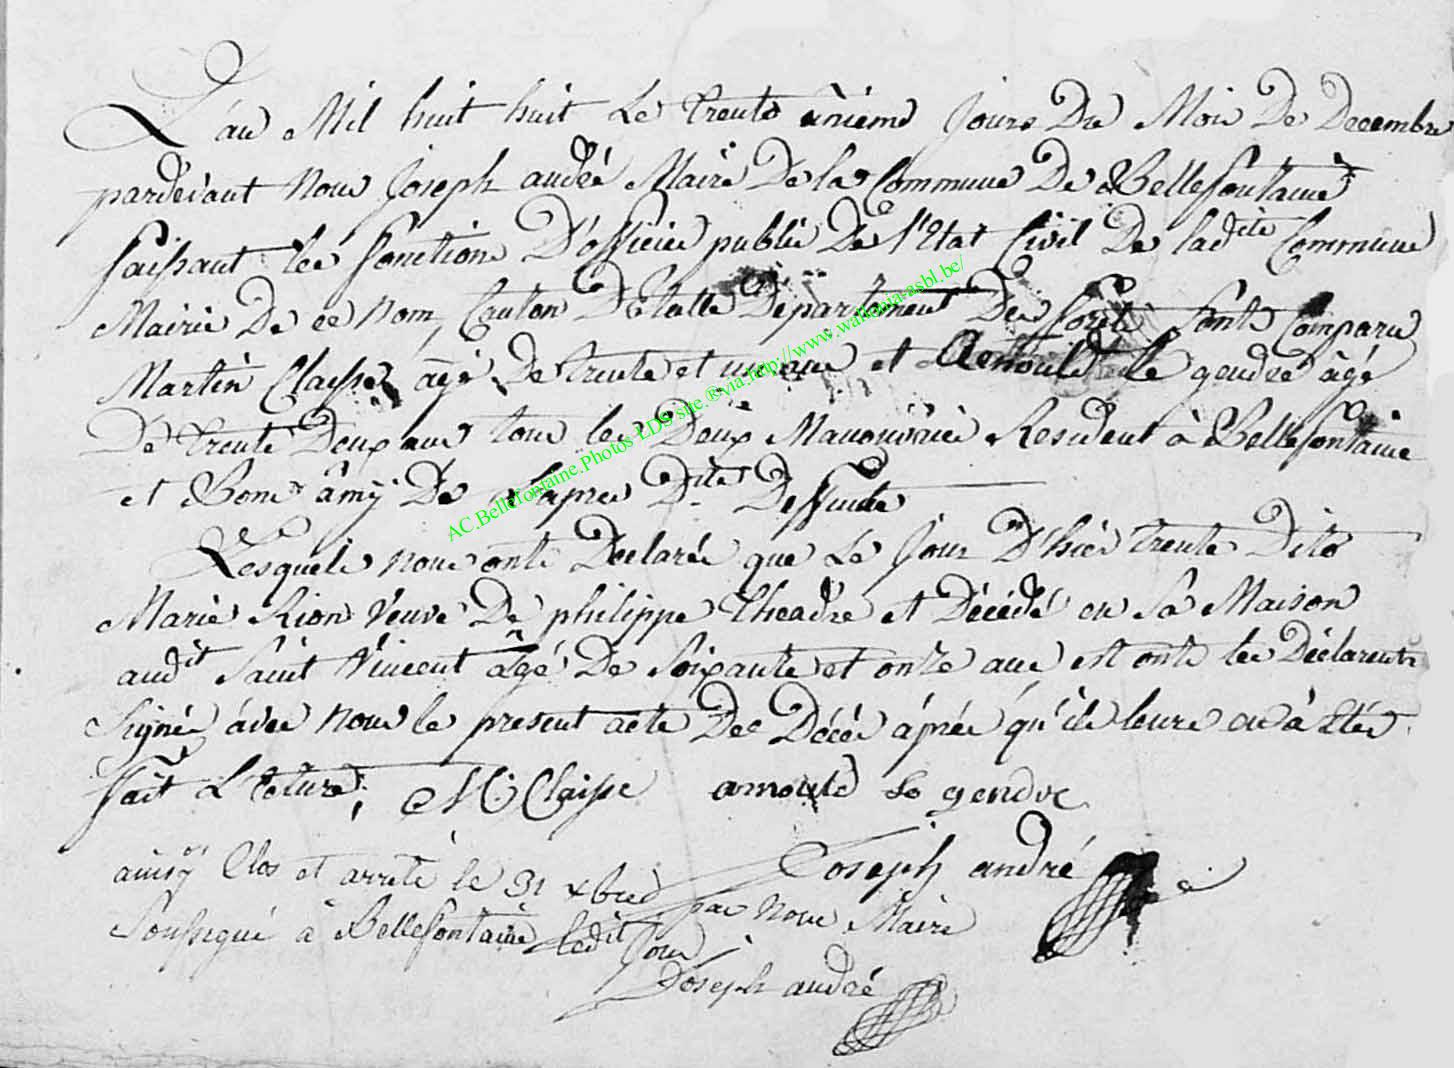 L'an Mil huit huit Le trente unieme Jours Du Mois De Decembre
pardevant Nous Joseph andré Maire De la Commune De Bellefontaine
faissant les fonction D'officier public De l'Etat Civil De ladite Commune
Mairie De ce Nom, Canton D'Etalle Departement Des forêts sont Comparu
Martin Claisse agé De trente et un ans et Arnould le gendre âgé
De trente Deux ans tous les Deux Manouvrier Resident à Bellefontaine
et Bons âmÿ De L'apres Dite Deffunte
Lesquels nous onts Declarés que Le Jour D'hier trente Dito
Marie Rion Veuve De philippe theadre et Décédé en Sa Maison
audit Saint Vincent âgé De Soixante et onze ans et onts les Déclarents
Signés àvec Nous le present acte De Décés àprés qu'ils leurs en à Etés
fait L'ecture, M: Claisse arnould Le gendre
Joseph andré
ainsÿ Clos et arreté le 31 xbre par nous Maire
Soussigné à Bellefontaine ledit Jour
Joseph andré
AC.Bellefontaine.Photos LDS site ®via.http://www.wallonia-asbl.be/